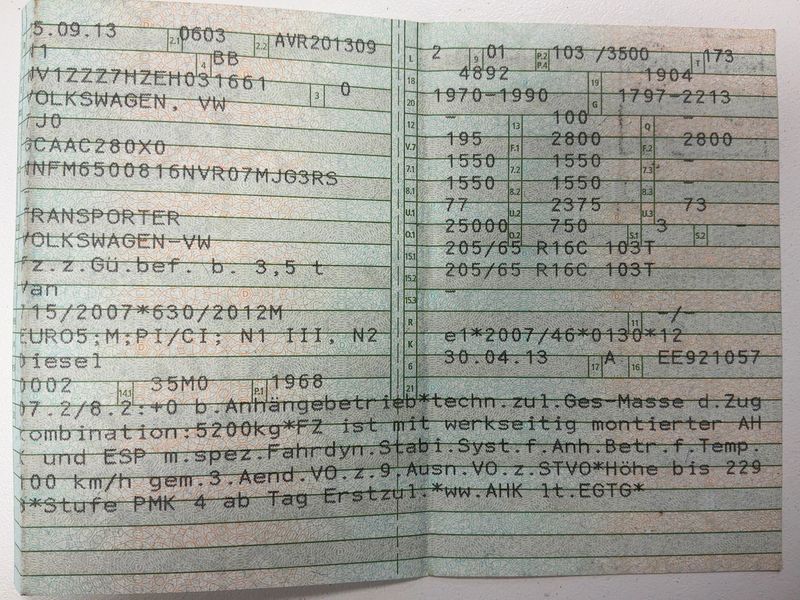 5.09.13 2.1 0603 2.2 AVR201309
11 4 BB
WV1ZZZ7HZEH031661 3 0
VOLKSWAGEN, VW
7J0
GCAAC280X0
NFM6500816NVR07MJG3RS
TRANSPORTER
VOLKSWAGEN-VW
Fz.z.Gü.bef. b. 3,5 t
Van
715/2007*630/2012M
EURO5;M;PI/CI; N1 III, N2
Diesel
0002 14.1 35M0 P.1 1968
L 2 9 01 P.2 P.4 103 /3500 T 173
18 4892 19 1904
20 1970-1990 G 1797-2213
12 - 13 100 Q -
V.7 195 F.1 2800 F.2 2800
7.1 1550 7.2 1550 7.3 -
8.1 1550 8.2 1550 8.3 -
U.1 77 U.2 2375 U.3 73
O.1 25000 O.2 750 S.1 3 S.2 -
15.1 205/65 R16C 103T
15.2 205/65 R16C 103T
15.3 -
R 11 -/-
K e1*2007/46*0130*12
6 30.04.13 17 A 16 EE921057
21
07.2/8.2:+0 b.Anhängebetrieb*techn.zul.Ges-Masse d.Zug
ombination:5200kg*FZ ist mit werkseitig montierter AH
K und ESP m.spez.Fahrdyn.Stabi.Syst.f.Anh.Betr.f.Temp.
100 km/h gem.3.Aend.VO.z.9.Ausn.VO.z.STVO*Höhe bis 229
*Stufe PMK 4 ab Tag Erstzul.*ww.AHK lt.EGTG*